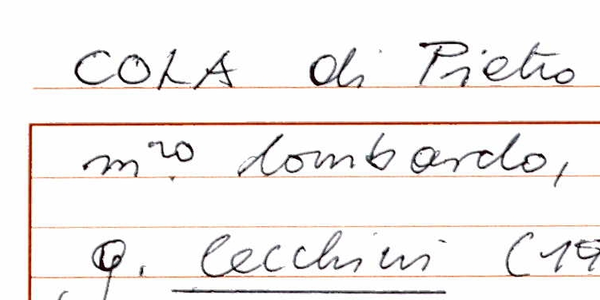 COLA di Pietro
m.ro lombardo,
g. Cecchini (19